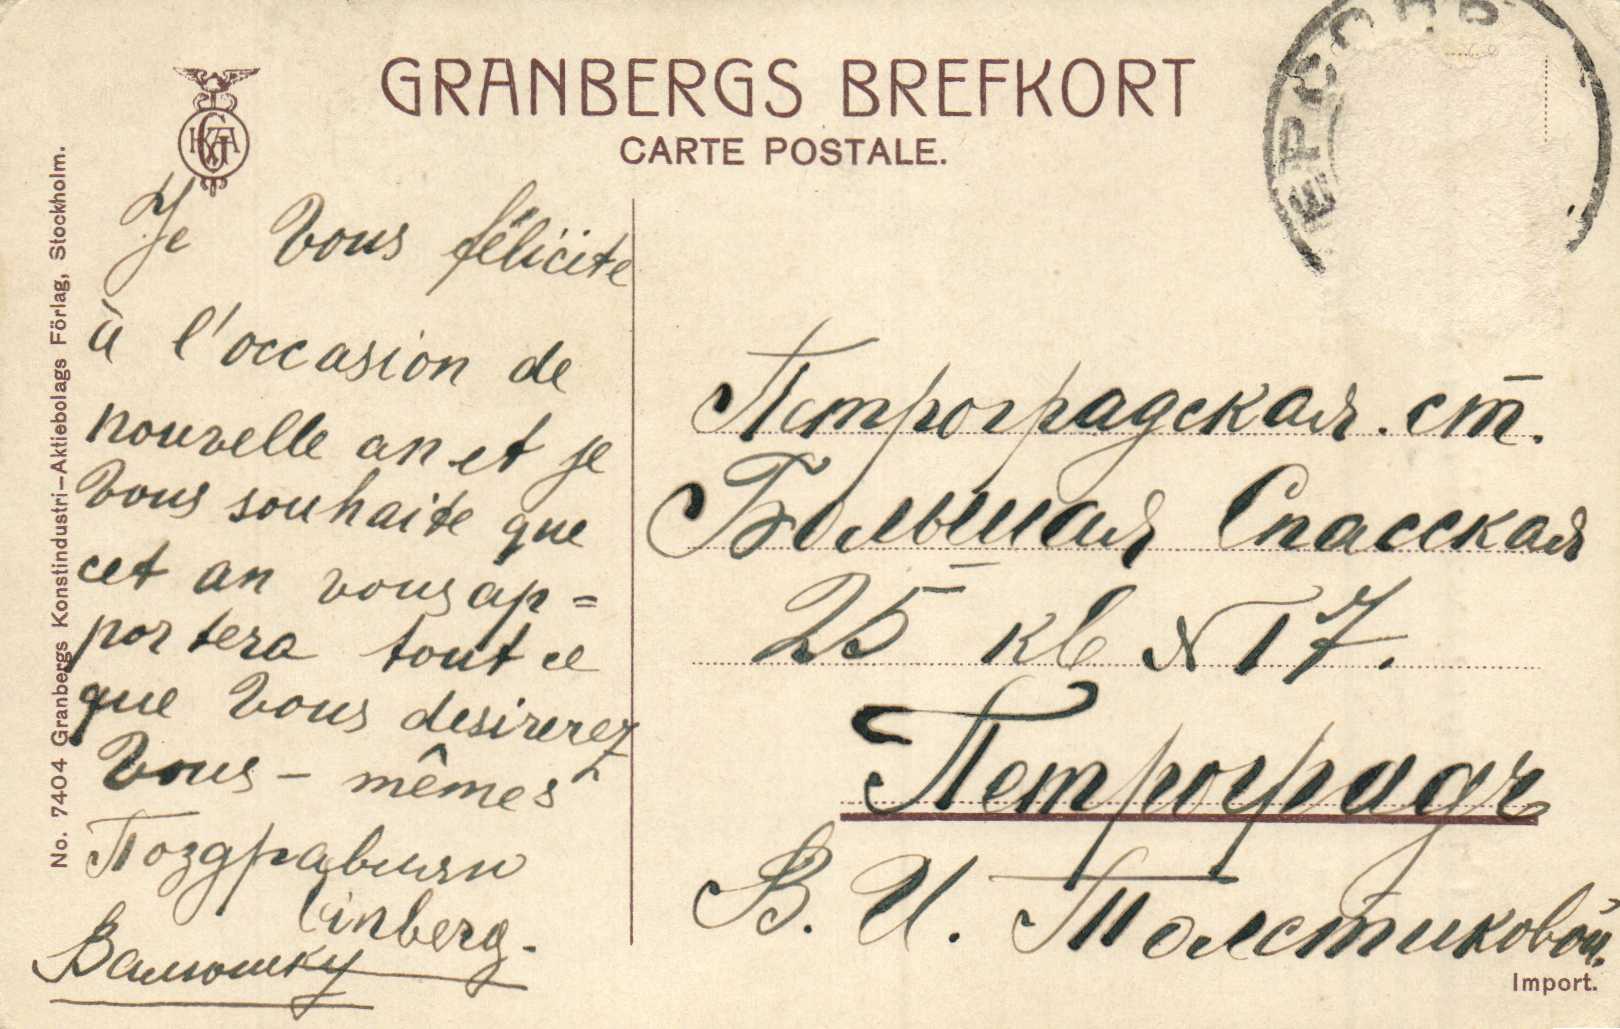 GRANBERGS BREFKORT
CARTE POSTALE.
No. 7404 Granbergs Konstindustri-Aktiebolags Förlag, Stockholm.
Je Vous félicite
à l'occasion de
nouvelle an et je
Vous souhaite que
cet an vous ap=
portera tout ce
que Vous desirerez
Vous - mêmes
Поздравляю
Валюшку
Петроградская. ст.
Большая Спасская
25 кв N 17.
Петроградъ
В. И. Толстиковой.
Import.